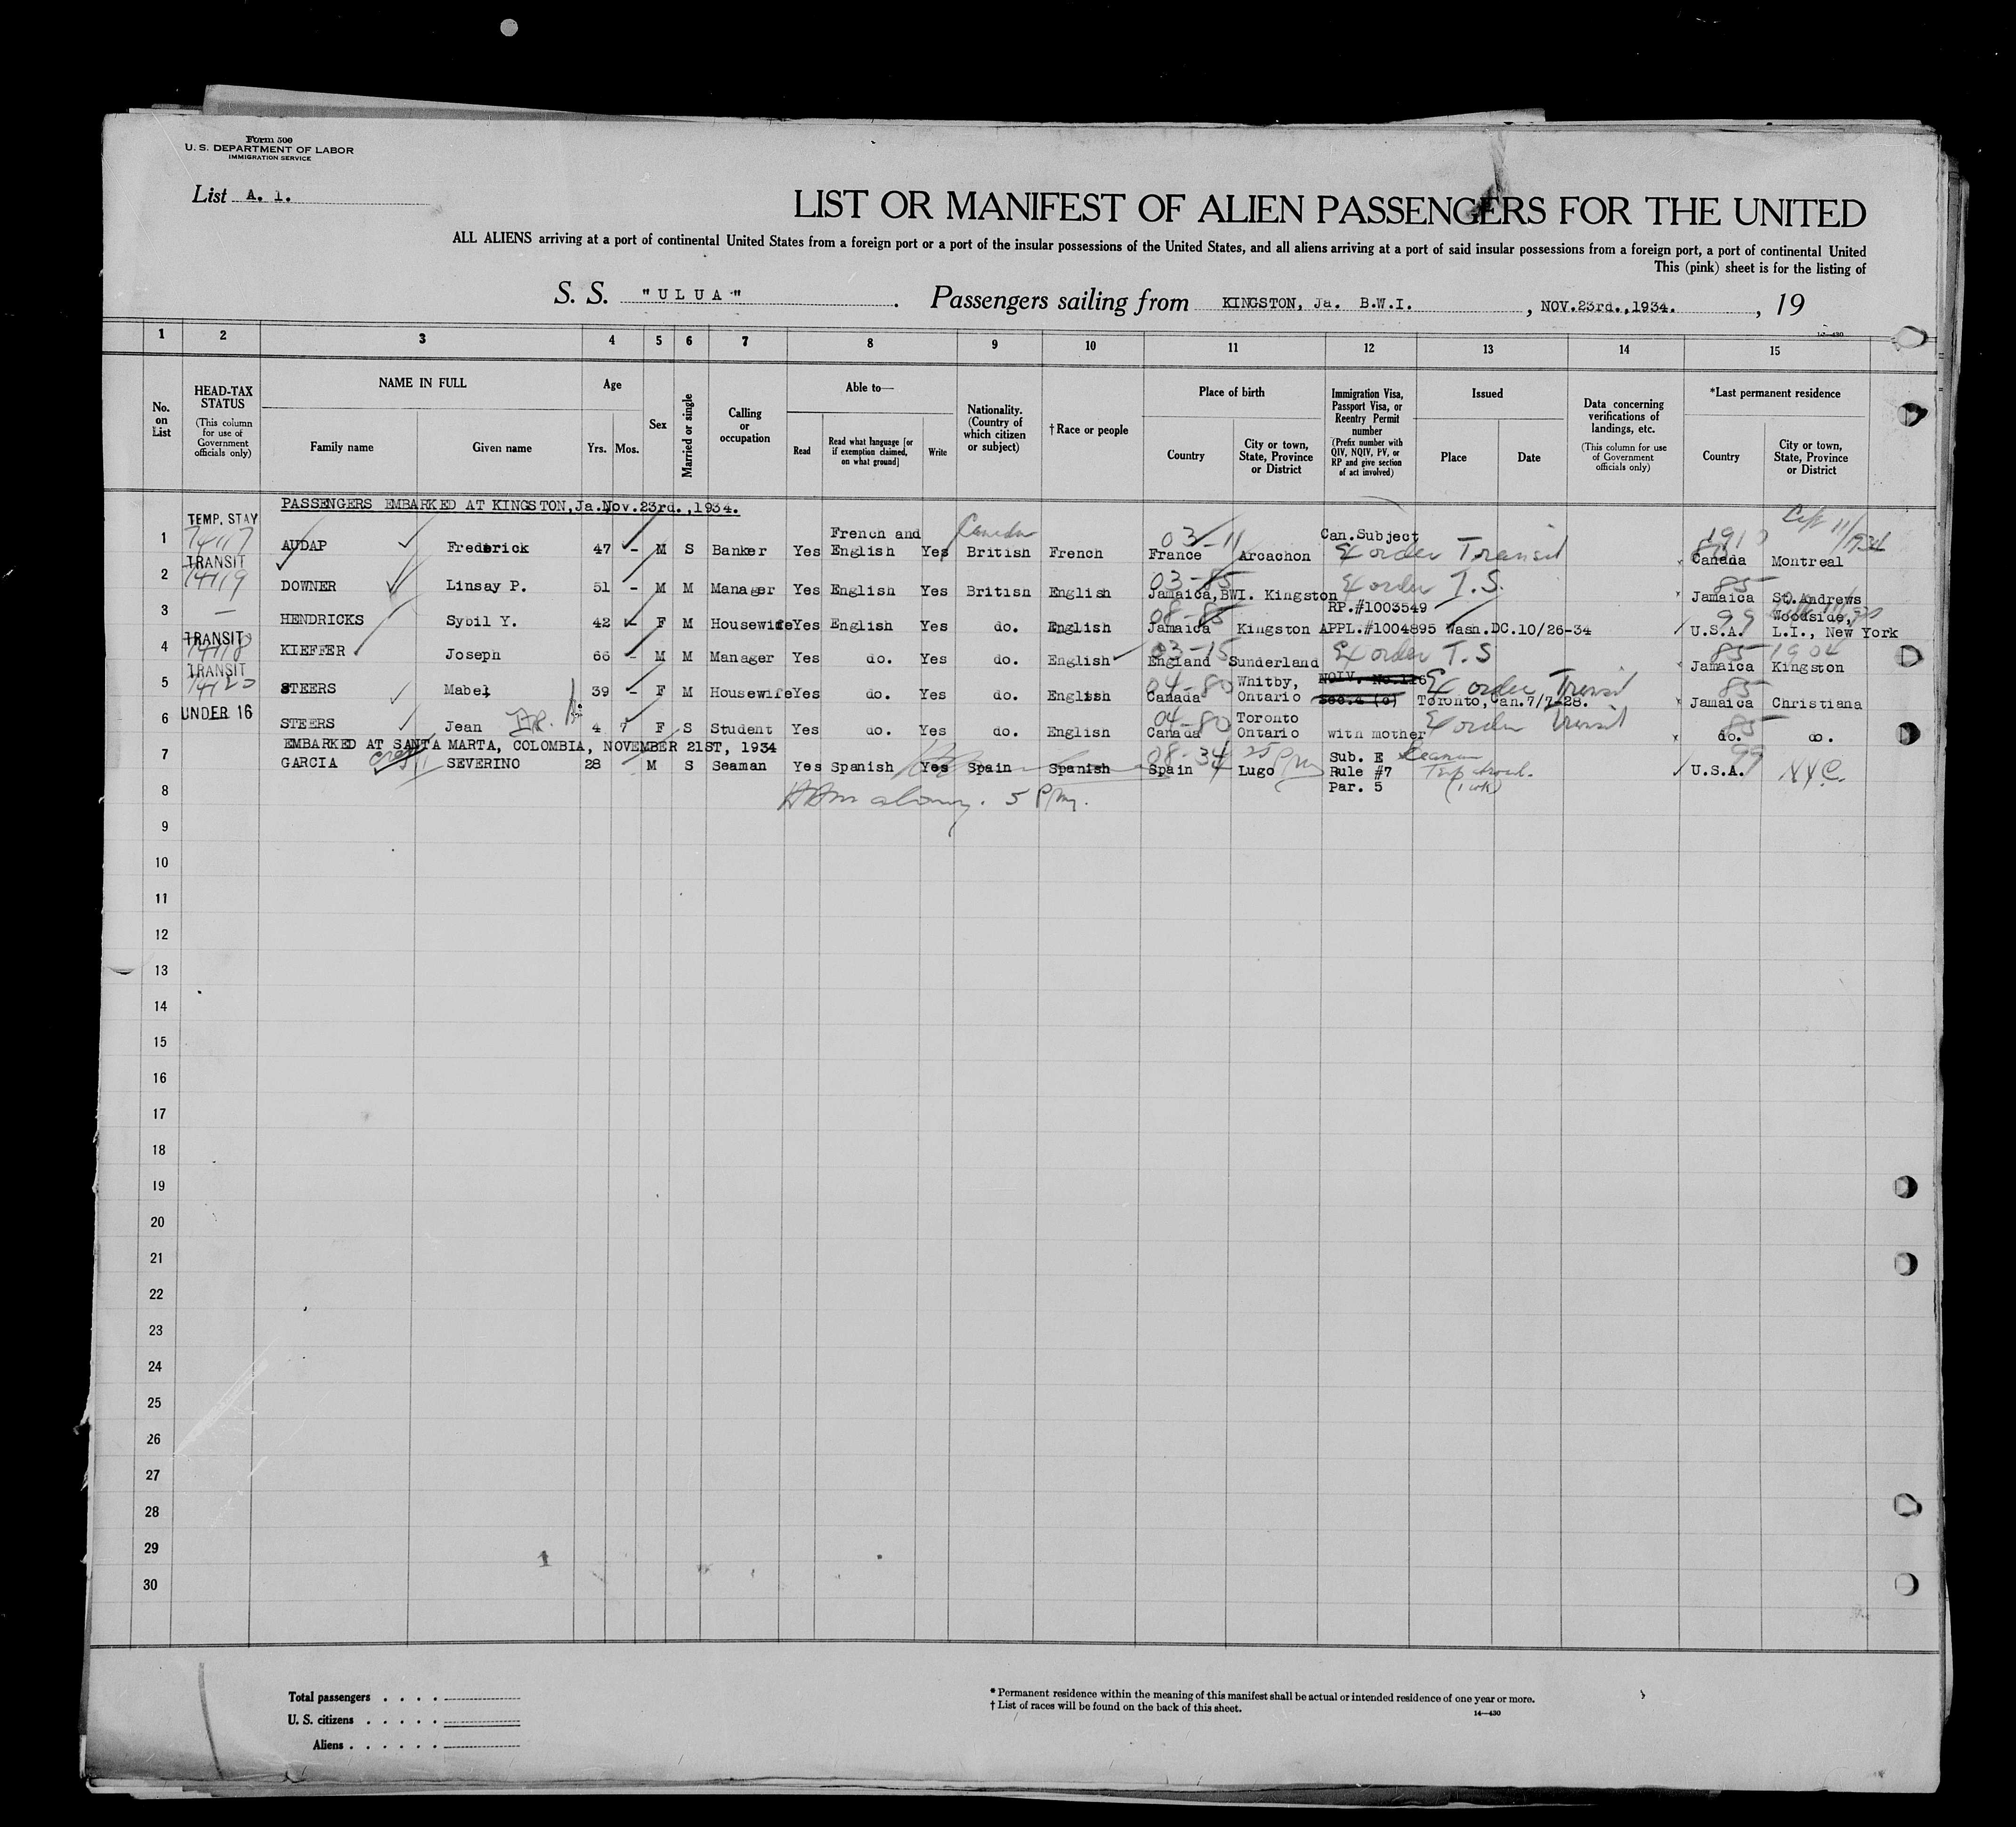 Form 500
U. S. DEPARTMENT OF LABOR
IMMIGRATION SERVICE
List A. 1.
LIST OR MANIFEST OF ALIEN PASSENGERS FOR THE UNITED
ALL ALIENS arriving at a port of continental United States from a foreign port or a port of the insular possessions of the United States, and all aliens arriving at a port of said insular possessions from a foreign port, a port of continental United
This (pink) sheet is for the listing of
S. S. "ULUA". Passengers sailing from KINGSTON, Ja. B.W.I., NOV.23rd.,1934., 19
14—430
1 2 3 4 5 6 7 8 9 10 11 12 13 14 15
No. on List
HEAD-TAX STATUS (This column for use of Government officials only)
NAME IN FULL Family name Given name
Age Yrs. Mos.
Sex
Married or single
Calling or occupation
Able to— Read Read what language [or if exemption claimed, on what ground] Write
Nationality. (Country of which citizen or subject)
†Race or people
Place of birth Country City or town, State, Province or District
Immigration Visa, Passport Visa, or Reentry Permit number (Prefix number with QIV, NQIV, PV, or RP and give section of act involved)
Issued Place Date
Data concerning verifications of landings, etc. (This column for use of Government officials only)
*Last permanent residence Country City or town, State, Province or District
PASSENGERS EMBARKED AT KINGSTON,Ja.Nov.23rd.,1934.
TEMP. STAY French and Canada 03-11 Can.Subject
1 74117 AUDAP Frederick 47 - M S Banker Yes English Yes British French France Arcachon Ex order Transit Canada Montreal
TRANSIT 03-85 85
2 74119 DOWNER Linsay P. 51 - M M Manager Yes English Yes British English Jamaica,BWI. Kingston Ex order T.S. Jamaica St.Andrews
08-85 RP.#1003549 99 Woodside,
3 — HENDRICKS Sybil Y. 42 - F M Housewife Yes English Yes do. English Jamaica Kingston APPL.#1004895 Wasn.DC.10/26-34 U.S.A. L.I., New York
TRANSIT 03-15 85 1904
4 74118 KIEFFER Joseph 66 - M M Manager Yes do. Yes do. English England Sunderland Ex order T.S Jamaica Kingston
TRANSIT 04-80 Whitby, NQIV. No.116 Ex order Transit 85
5 74120 STEERS Mabel 39 - F M Housewife Yes do. Yes do. English Canada Ontario Sec.4 (c) Toronto,Can.7/7-28. Jamaica Christiana
UNDER 16 04-80 Toronto Ex order Transit 85
6 STEERS Jean 4 7 F S Student Yes do. Yes do. English Canada Ontario with mother do. do.
EMBARKED AT SANTA MARTA, COLOMBIA, NOVEMBER 21ST, 1934
08-34 Sub. E 99
7 GARCIA SEVERINO 28 M S Seaman Yes Spanish Yes Spain Spanish Spain Lugo Rule #7 U.S.A. N.Y.C.
Par. 5 (1 wk)
8 5 P/my.
9
10
11
12
13
14
15
16
17
18
19
20
21
22
23
24
25
26
27
28
29
30
Total passengers . . . .
U. S. citizens . . . . .
Aliens . . . . . .
* Permanent residence within the meaning of this manifest shall be actual or intended residence of one year or more.
† List of races will be found on the back of this sheet.
14—430